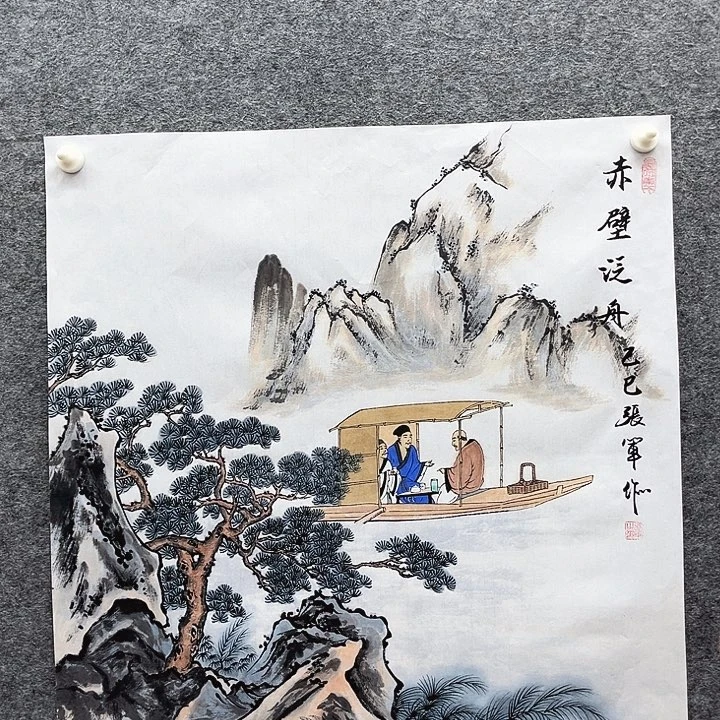 赤壁泛舟
己巳張軍作